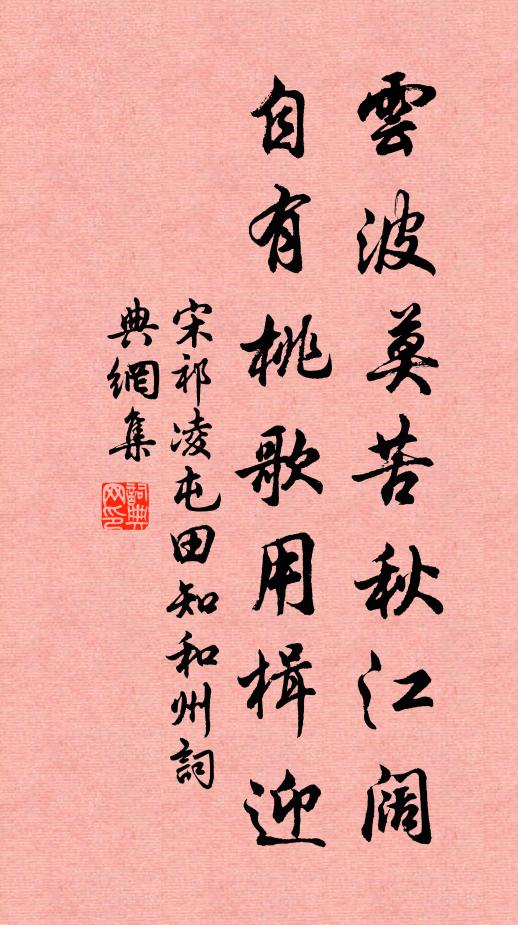 雲波莫苦秋江阔
自有桃歌用楫迎
宋祁凌屯田知和州詞
典網集
詞典网印